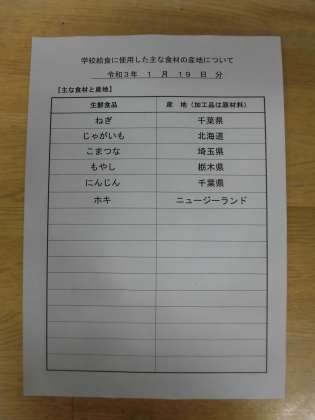 学校給食に使用した主な食材の産地について
令和3年 1 月 19 日 分
【主な食材と産地】
生鮮食品 産 地（加工品は原材料）
ねぎ 千葉県
じゃがいも 北海道
こまつな 埼玉県
もやし 栃木県
にんじん 千葉県
ホキ ニュージーランド